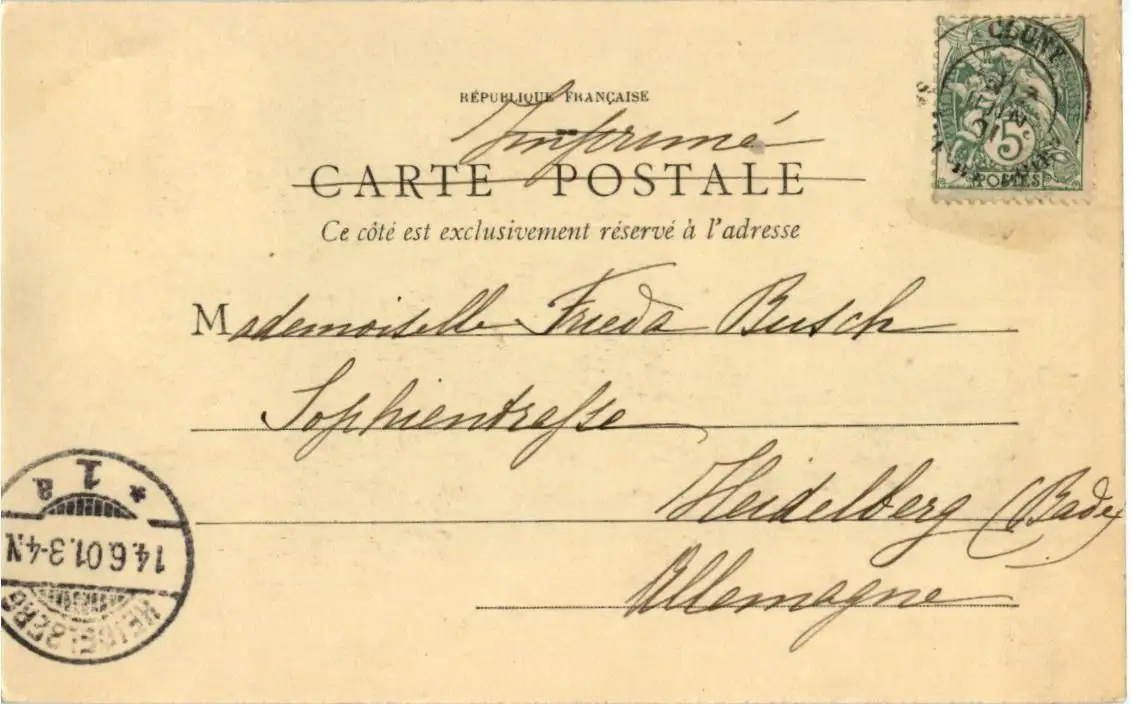 RÉPUBLIQUE FRANÇAISE
Imprimé
CARTE POSTALE
Ce côté est exclusivement réservé à l'adresse
Mademoiselle Frieda Busch
Sophienstrasse
Heidelberg (Bade)
Allemagne
CLUNY
5c
POSTES
* 1 a
14.6.01.3-4N
HEIDELBERG